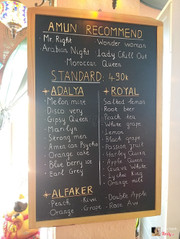 AMUN RECOMMEND
Mr. Right Wonder woman
Arabian Night Lady Chill Out
Moroccan Queen
STANDARD: 490k
+ADALYA
Melon mise
Disco very
Gipsy Queen
Marilyn
Strong men
American Psycho
Orange cafe
Blue berry ice
Earl Grey
+ROYAL
Salted lemon
Rock beer
Peach tea
White grape
Lemon
Black grape
Passion fruit
Harley Queen
Apple Queen
Guava White
Lychee King
Orange milk
+ALFAKER
Peach Kiwi Double Apple
Orange Grape